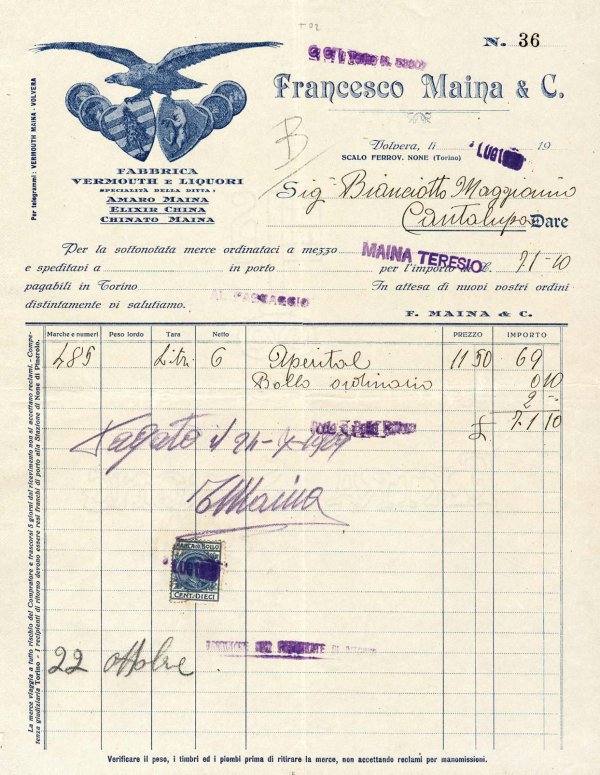 N. 36
Francesco Maina & C.
Per telegrammi: VERMOUTH MAINA - VOLVERA
FABBRICA
VERMOUTH E LIQUORI
SPECIALITÀ DELLA DITTA:
AMARO MAINA
ELIXIR CHINA
CHINATO MAINA
B
Volvera, li LUGLIO 19
SCALO FERROV. NONE (Torino)
Sig. Bianciotto Maggiorino
Cantalupa Dare
Per la sottonotata merce ordinataci a mezzo MAINA TERESIO
e speditavi a in porto per l'importo di L. 71-10
pagabili in Torino AL PASSAGGIO In attesa di nuovi vostri ordini
distintamente vi salutiamo.
F. MAINA & C.
Marche e numeri Peso lordo Tara Netto PREZZO IMPORTO
485 Litri 6 Aperital 11 50 69
Bollo ordinario 0 10
2 --
£ 71 10
Pagato il 24-X-1927
Maina
MARCA DA BOLLO
LUGLIO
CENT. DIECI
22 ottobre
La merce viaggia a tutto rischio del Compratore e trascorsi 5 giorni dal ricevimento non si accettano reclami. - Compe-
tenza giudiziaria Torino - I recipienti di ritorno devono essere resi franchi di porto alla Stazione di None di Pinerolo.
Verificare il peso, i timbri ed i piombi prima di ritirare la merce, non accettando reclami per manomissioni.